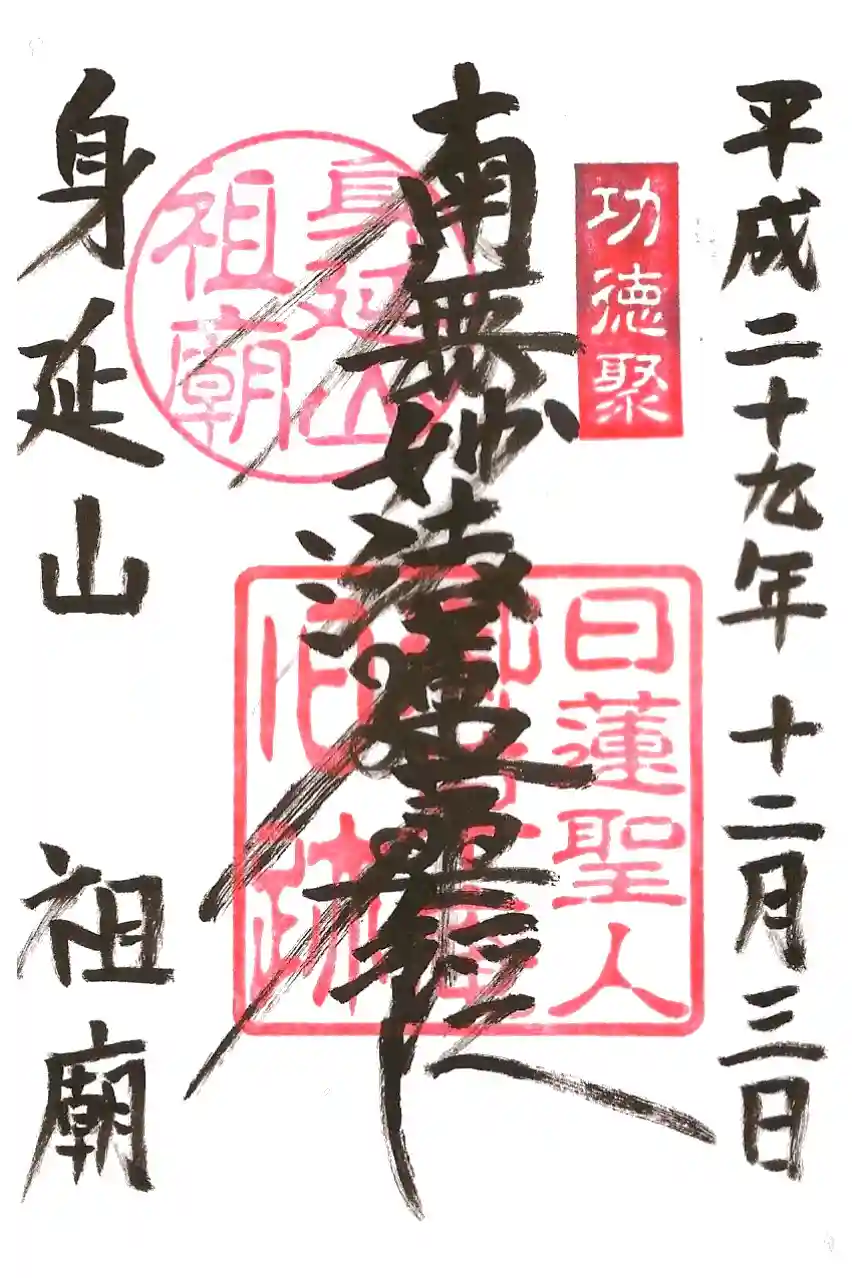 平成二十九年十二月三日
功徳聚
南無妙法蓮華経
日蓮聖人
旧跡
身延山
祖廟
身延山 祖廟